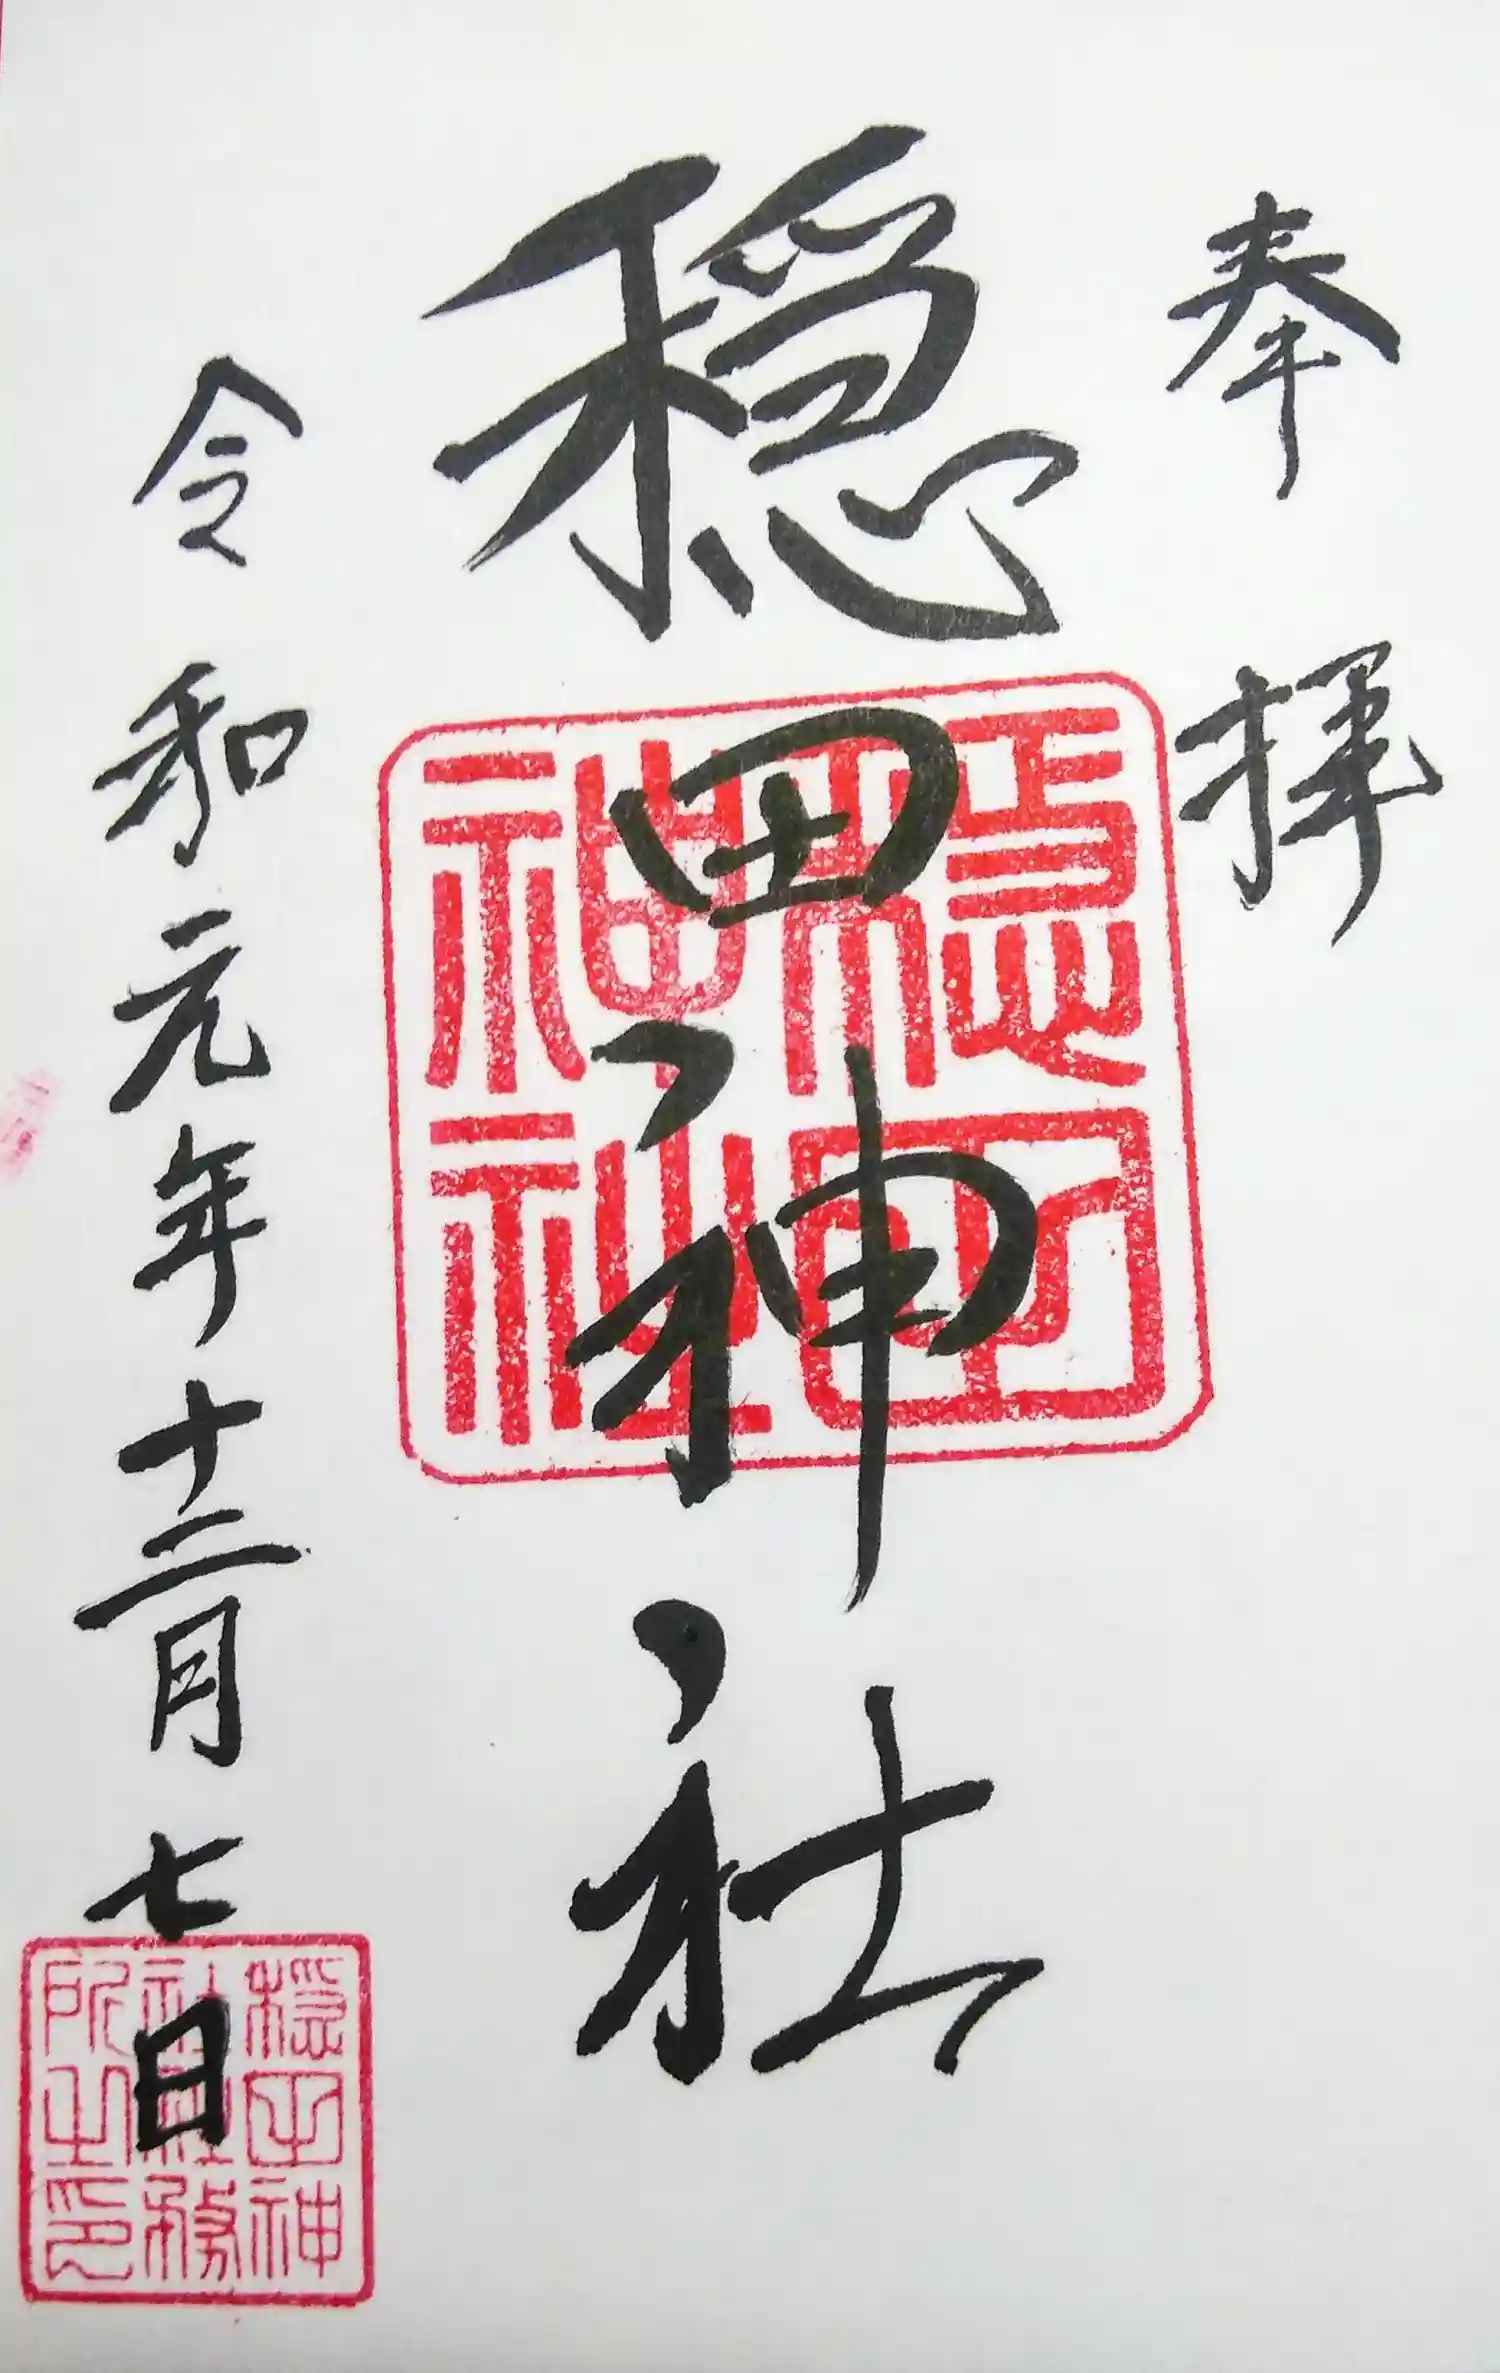 奉拝
穏田神社
穏田神社
令和元年十二月七日
穏田神社社務所之印